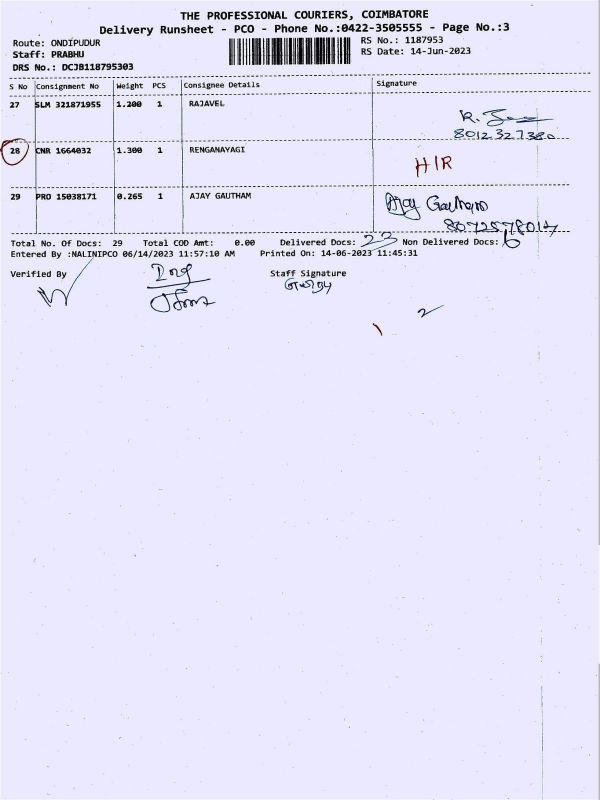 THE PROFESSIONAL COURIERS, COIMBATORE
Delivery Runsheet - PCO - Phone No.:0422-3505555 - Page No.:3
Route: ONDIPUDUR
RS No.: 1187953
Staff: PRABHU
RS Date: 14-Jun-2023
DRS No.: DCJB118795303
S No Consignment No Weight PCS Consignee Details Signature
27 SLM 321871955 1.200 1 RAJAVEL
R.
8012327380
28 CNR 1664032 1.300 1 RENGANAYAGI
HIR
29 PRO 15038171 0.265 1 AJAY GAUTHAM
Ajay Gautham
Total No. Of Docs: 29 Total COD Amt: 0.00 Delivered Docs: 23 Non Delivered Docs: 6
Entered By :NALINIPCO 06/14/2023 11:57:10 AM Printed On: 14-06-2023 11:45:31
Verified By Staff Signature